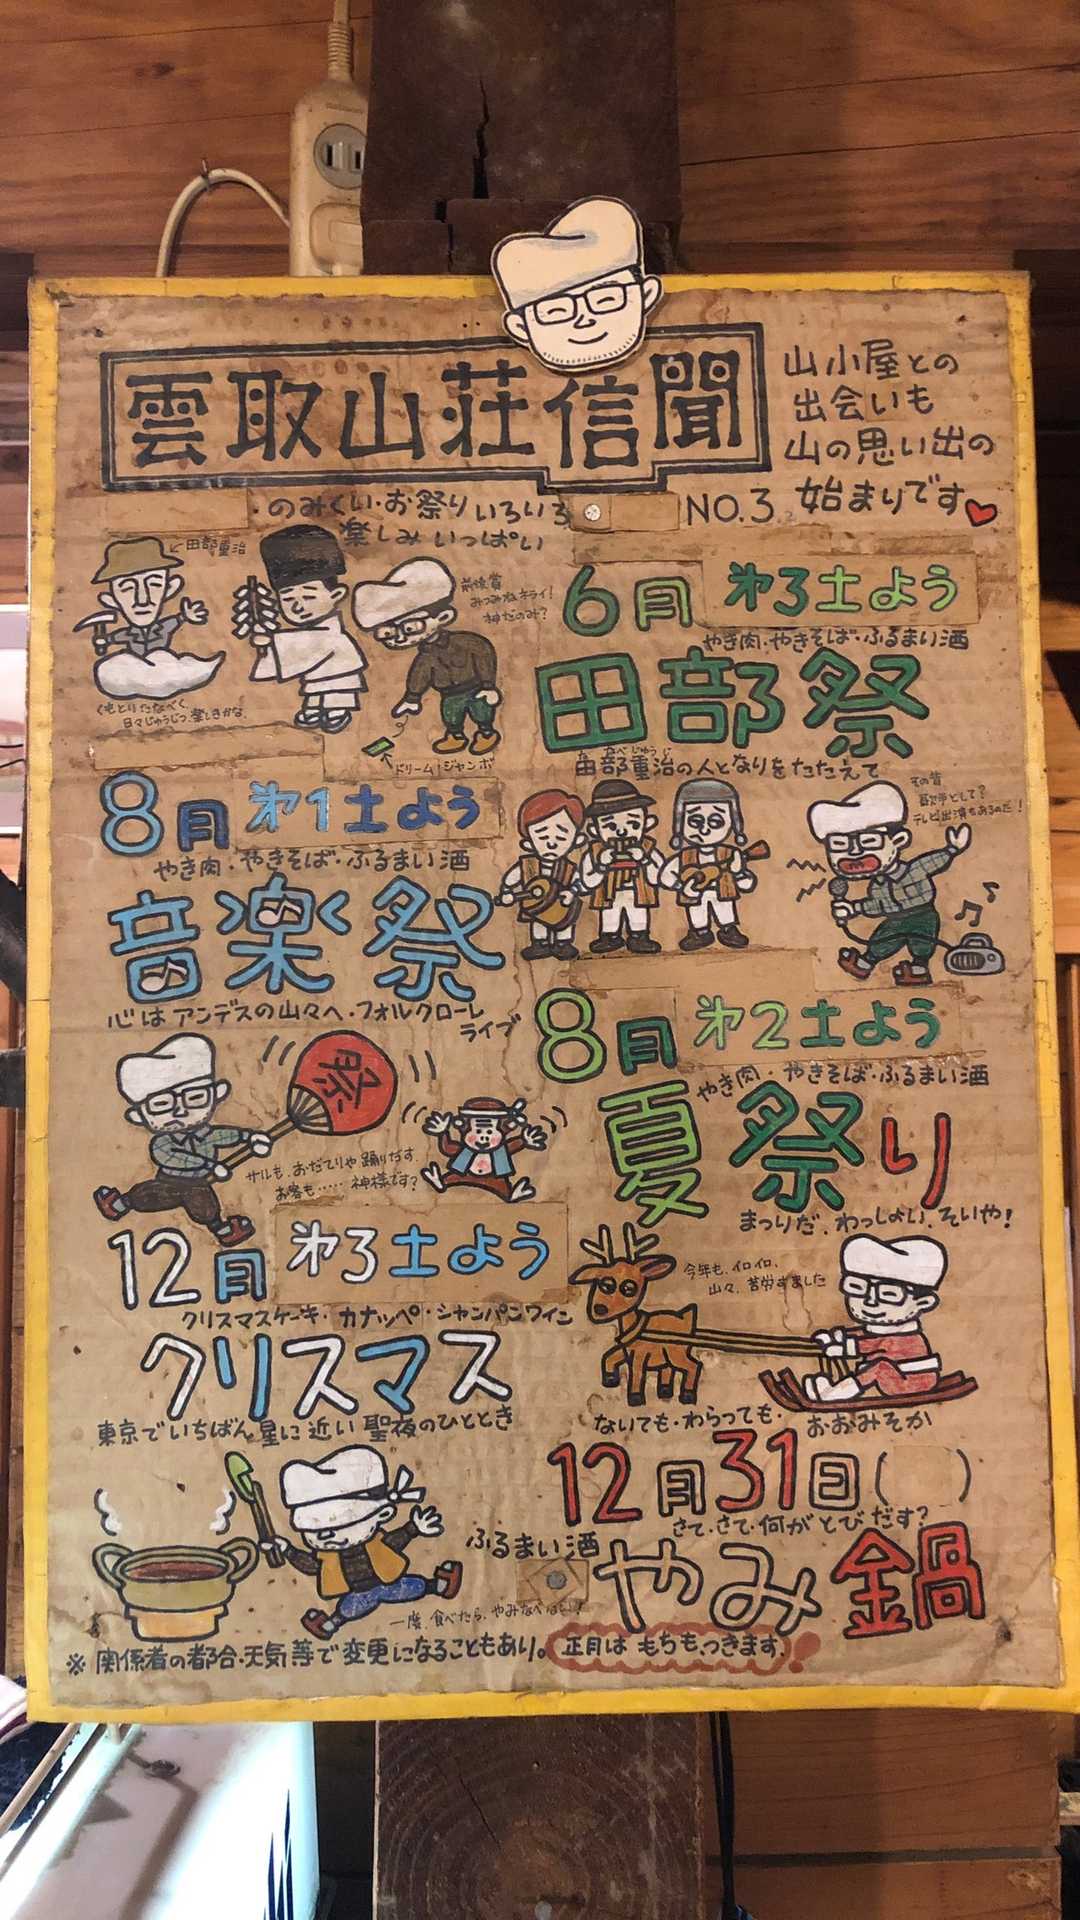 雲取山荘信聞
山小屋との
出会いも
山の思い出の
始まりです
NO.3
・のみくい・お祭りいろいろ
楽しみいっぱい
田部重治
神だのみ?
くもとりたなべく
日々じゅうじつ楽しきかな
ドリームジャンボ
6月 第3土よう
やき肉・やきそば・ふるまい酒
田部祭
たなべじゅうじ
田部重治の人となりをたたえて
8月 第1土よう
やき肉・やきそば・ふるまい酒
音楽祭
心はアンデスの山々へ・フォルクローレ
ライブ
その昔
歌手として?
テレビ出演もあるのだ!
8月 第2土よう
やき肉・やきそば・ふるまい酒
夏祭り
まつりだ、わっしょい、そいや!
祭
サルも、おだてりゃ踊りだす
お客も……神様です?
12月 第3土よう
クリスマスケーキ・カナッペ・シャンパンワイン
クリスマス
東京でいちばん星に近い聖夜のひととき
今年も、イロイロ、
山々、苦労すました
ないても・わらっても・おおみそか
12月31日( )
さて・さて・何がとびだす?
ふるまい酒
やみ鍋
一度、食べたら、やみなべ
※関係者の都合・天気等で変更になることもあり。正月はもちもつきます!